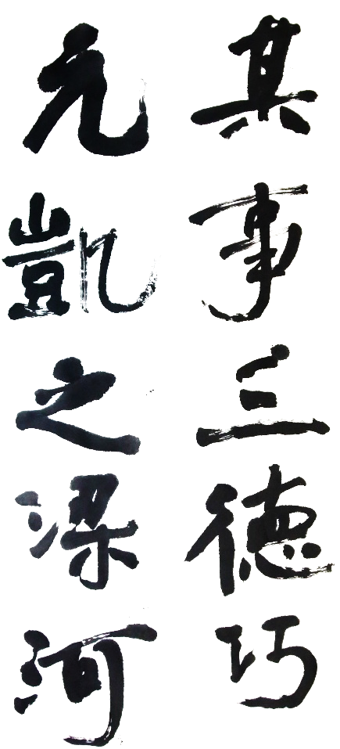 其事三德巧
元凱之梁河